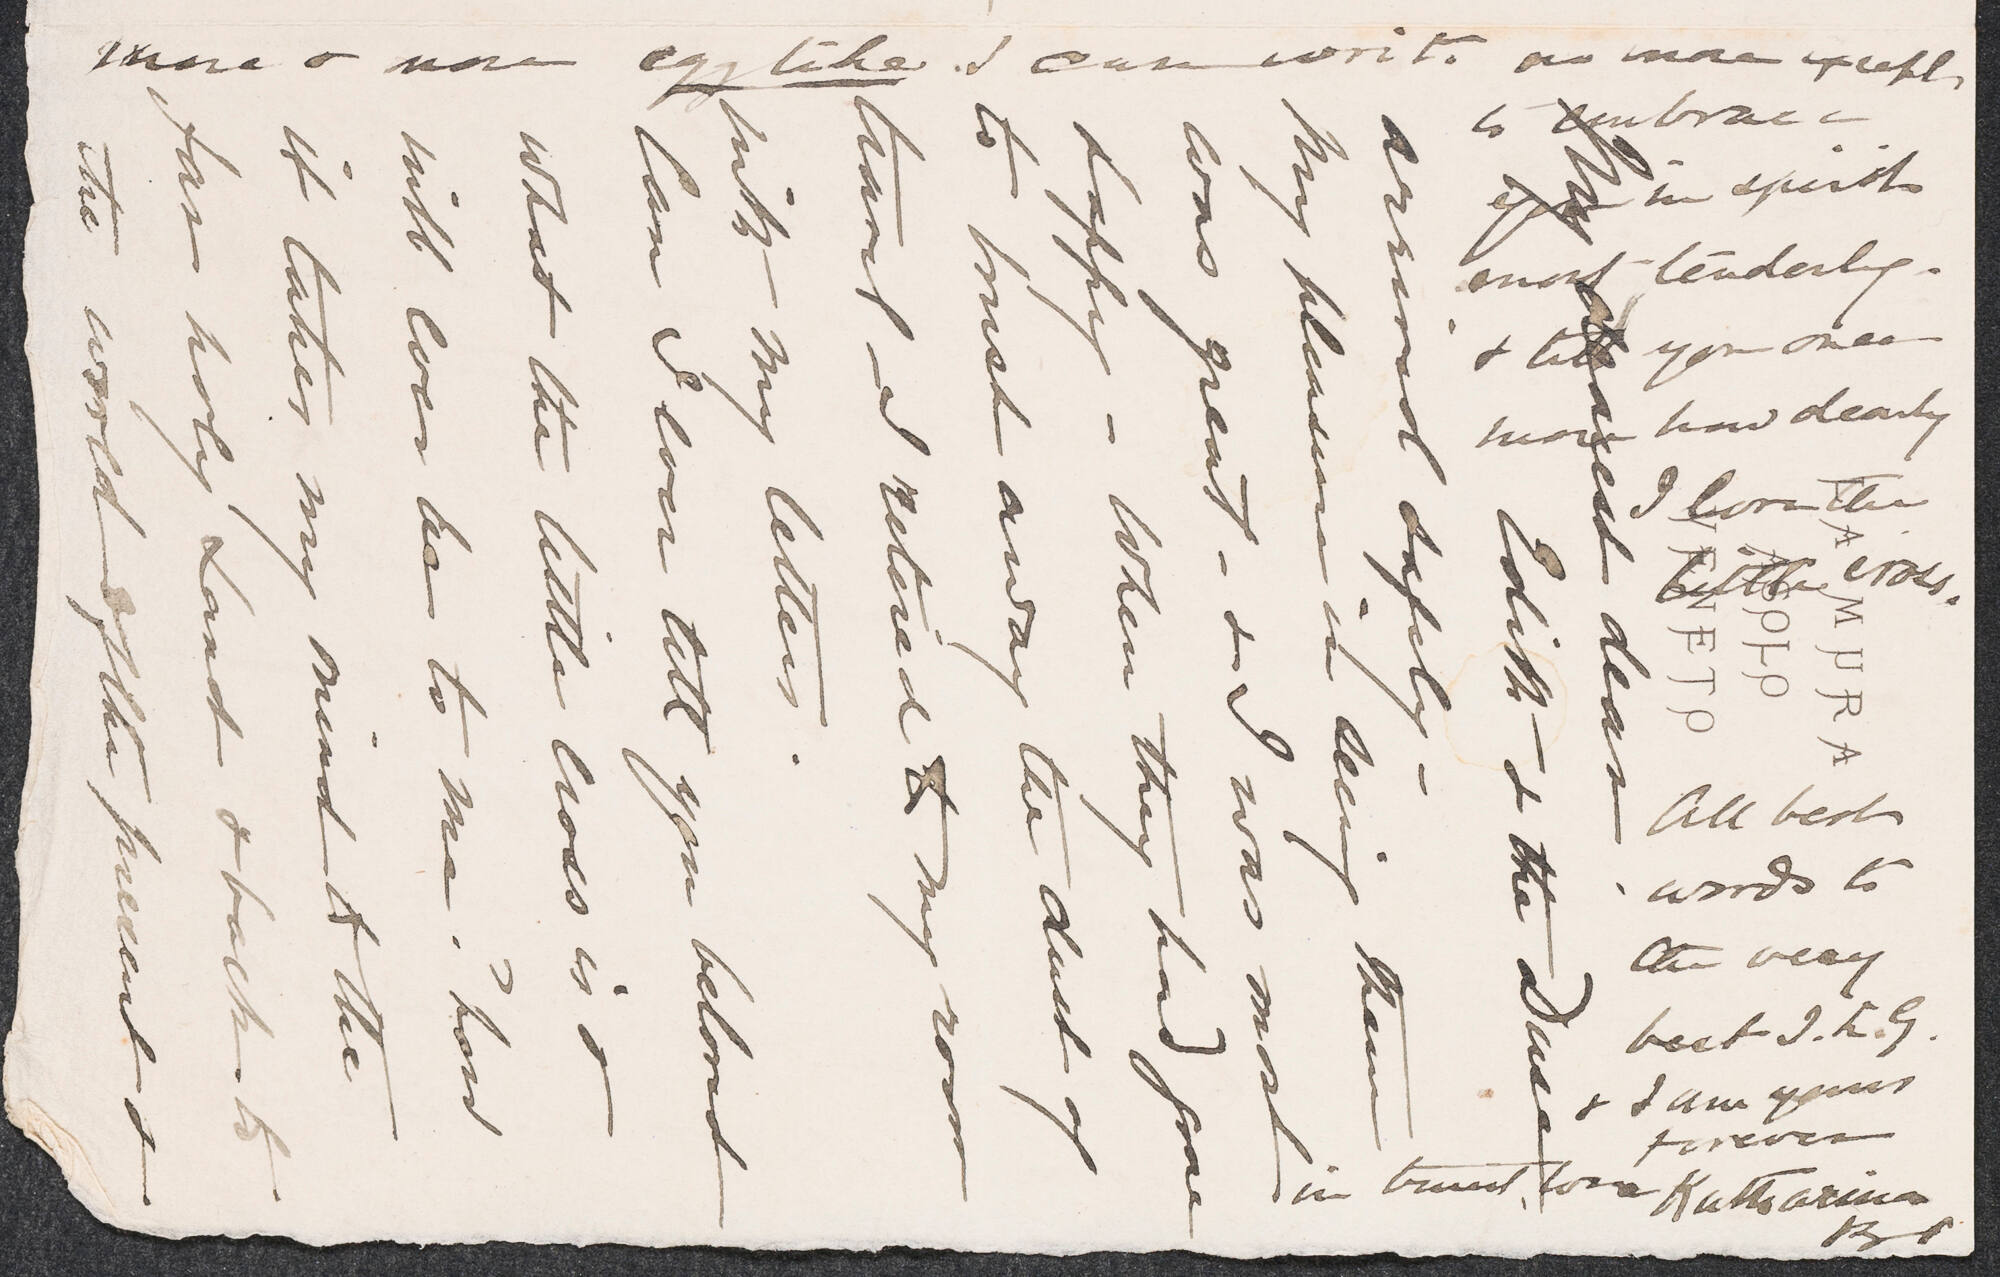 LA MURA
ASOLO
VENETO
My dearest dear.
Edith - & the Duse
arrived safely -
My pleasure in seeing them
was great - & I was most
happy - When they had gone
to brush away the dust of
travel - I retired to my room
with my letters.
Can I ever tell you beloved
what the little cross is &
will ever be to me. how
it takes my mind to the
far holy Land & back to
the world of the present &
more & more egglike. I can write no more except
to embrace
you in spirit
most tenderly.
& tell you once
more how dearly
I love the
little cross.
All best
words to
the very
best I.S.G.
& I am yours
forever
in truest love Katharine